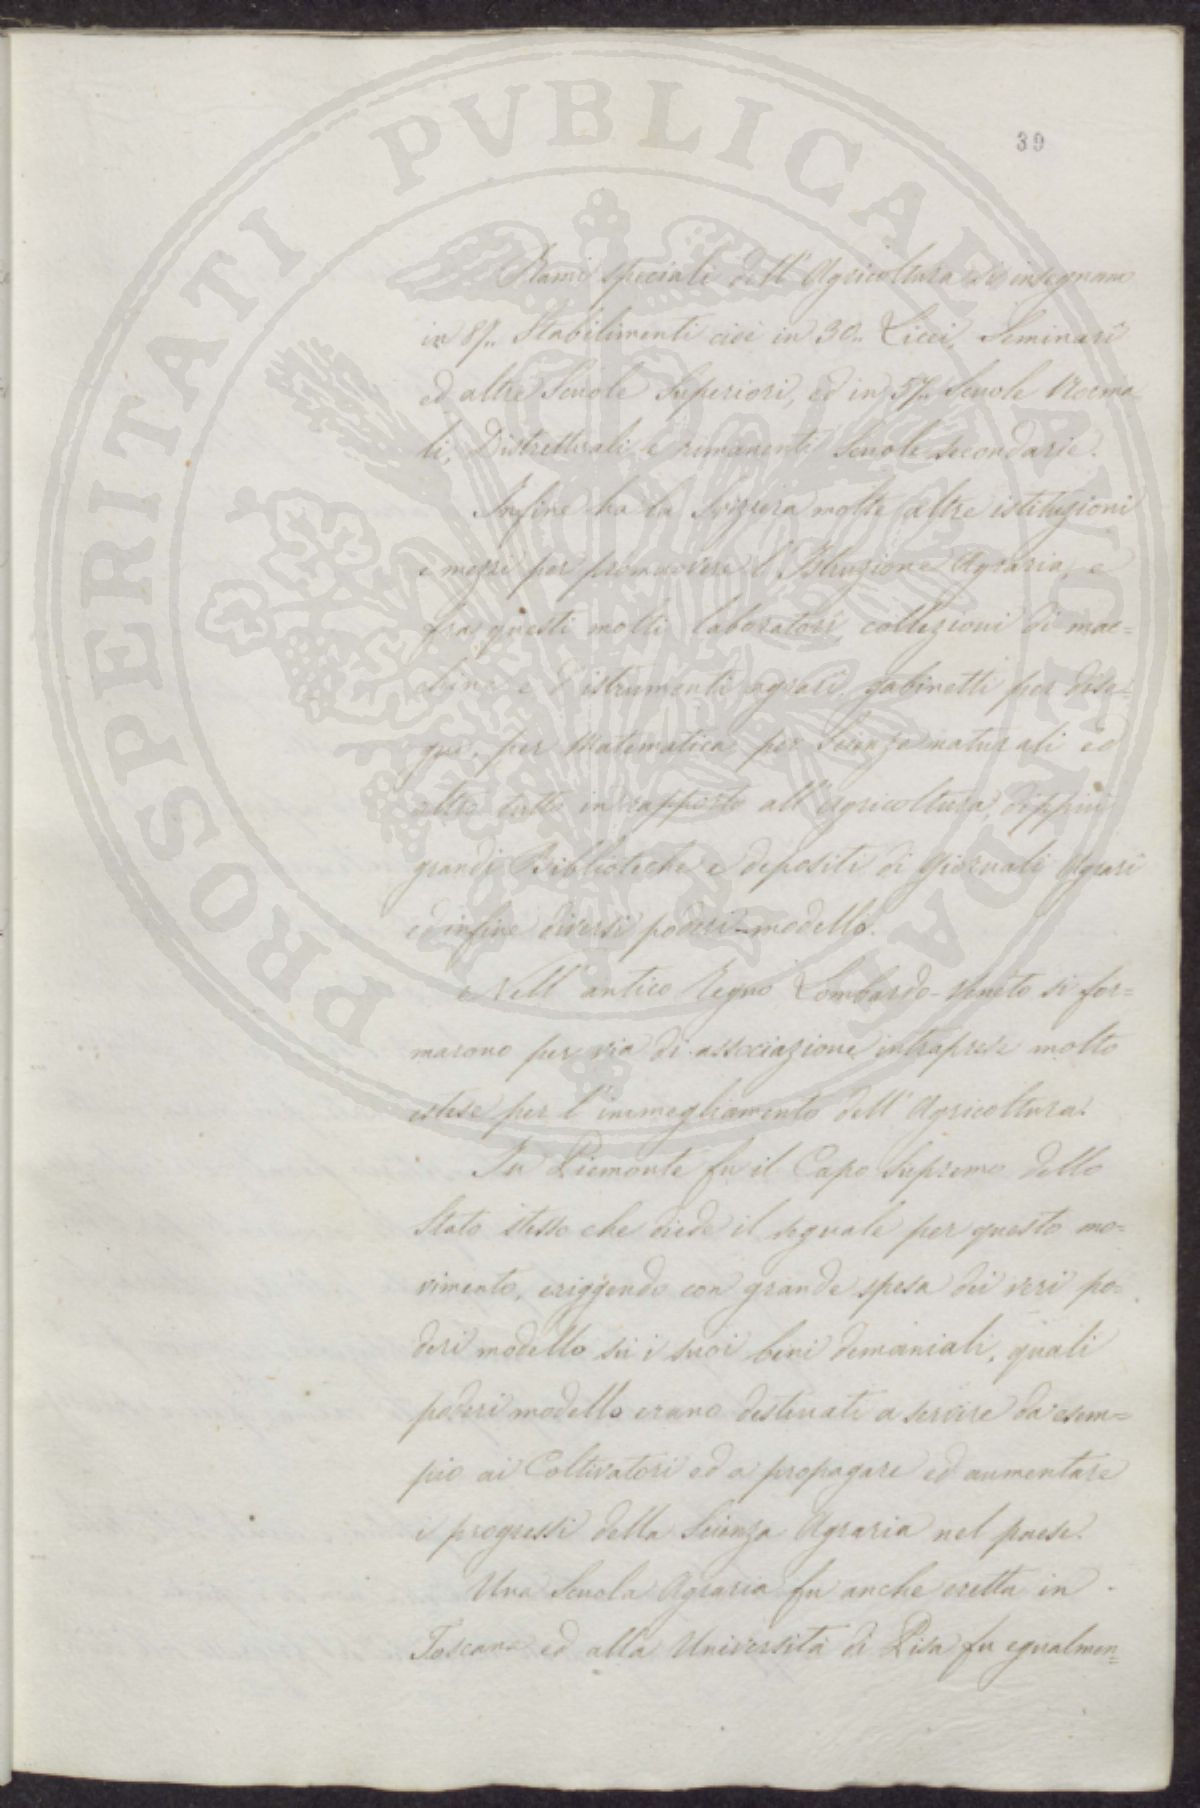 39
Rami speciali dell' Agricoltura si insegnano
in 87.. Stabilimenti cioè in 30.. Licei, Seminarî
ed altre Scuole Superiori, ed in 57.. Scuole Norma-
li, Distrettuali e rimanenti Scuole secondarie.
Infine ha la Svizzera molte altre istituzioni
e mezzi per promuovere l'Istruzione Agraria, e
fra questi molti laboratori, collezioni di mac=
chine e d'istrumenti agrarî, gabinetti per dise=
gno, per Matematica, per Scienze naturali ed
altro tutto in rapporto all' agricoltura, dippiù
grandi Biblioteche e depositi di Giornali Agrari
ed infine diversi poderi-modello.
Nell' antico Regno Lombardo-Veneto si for=
marono per via di associazione intraprese molto
estese per l'immegliamento dell' Agricoltura.
In Piemonte fu il Capo Supremo dello
Stato stesso che diede il segnale per questo mo=
vimento, eriggendo con grande spesa dei veri po=
deri modello su i suoi beni demaniali, quali
poderi modello erano destinati a servire da esem=
pio ai Coltivatori ed a propagare ed aumentare
i progressi della Scienza Agraria nel paese.
Una Scuola Agraria fu anche eretta in
Toscana ed alla Università di Pisa fu egualmen=
PROSPERITATI PVBLICAE AVGENDAE